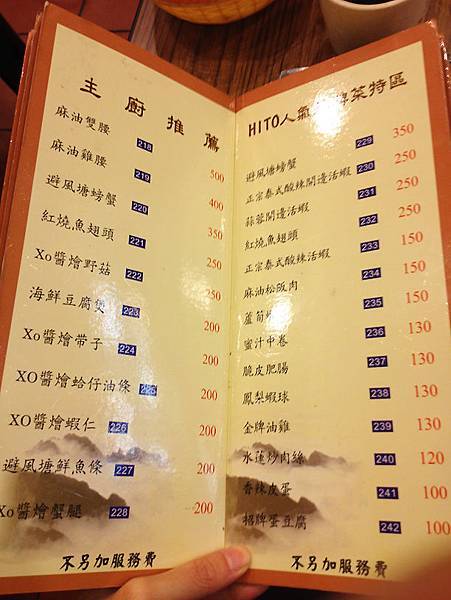 主廚推薦
麻油雙腰 218 500
麻油雞腰 219 400
避風塘螃蟹 220 350
紅燒魚翅頭 221 250
Xo醬燴野菇 222 250
海鮮豆腐煲 223 200
Xo醬燴带子 224 200
XO醬燴蛤仔油條 225 200
XO醬燴蝦仁 226 200
避風塘鮮魚條 227 200
Xo醬燴蟹腿 228 200
不另加服務費
HITO人氣 牌菜特區
避風塘螃蟹 229 350
正宗泰式酸辣開邊活蝦 230 250
蒜蓉開邊活蝦 231 250
紅燒魚翅頭 232 250
正宗泰式酸辣活蝦 233 150
麻油松阪肉 234 150
蘆筍 235 150
蜜汁中卷 236 130
脆皮肥腸 237 130
鳳梨蝦球 238 130
金牌油雞 239 130
水蓮炒肉絲 240 120
香辣皮蛋 241 100
招牌蛋豆腐 242 100
不另加服務費